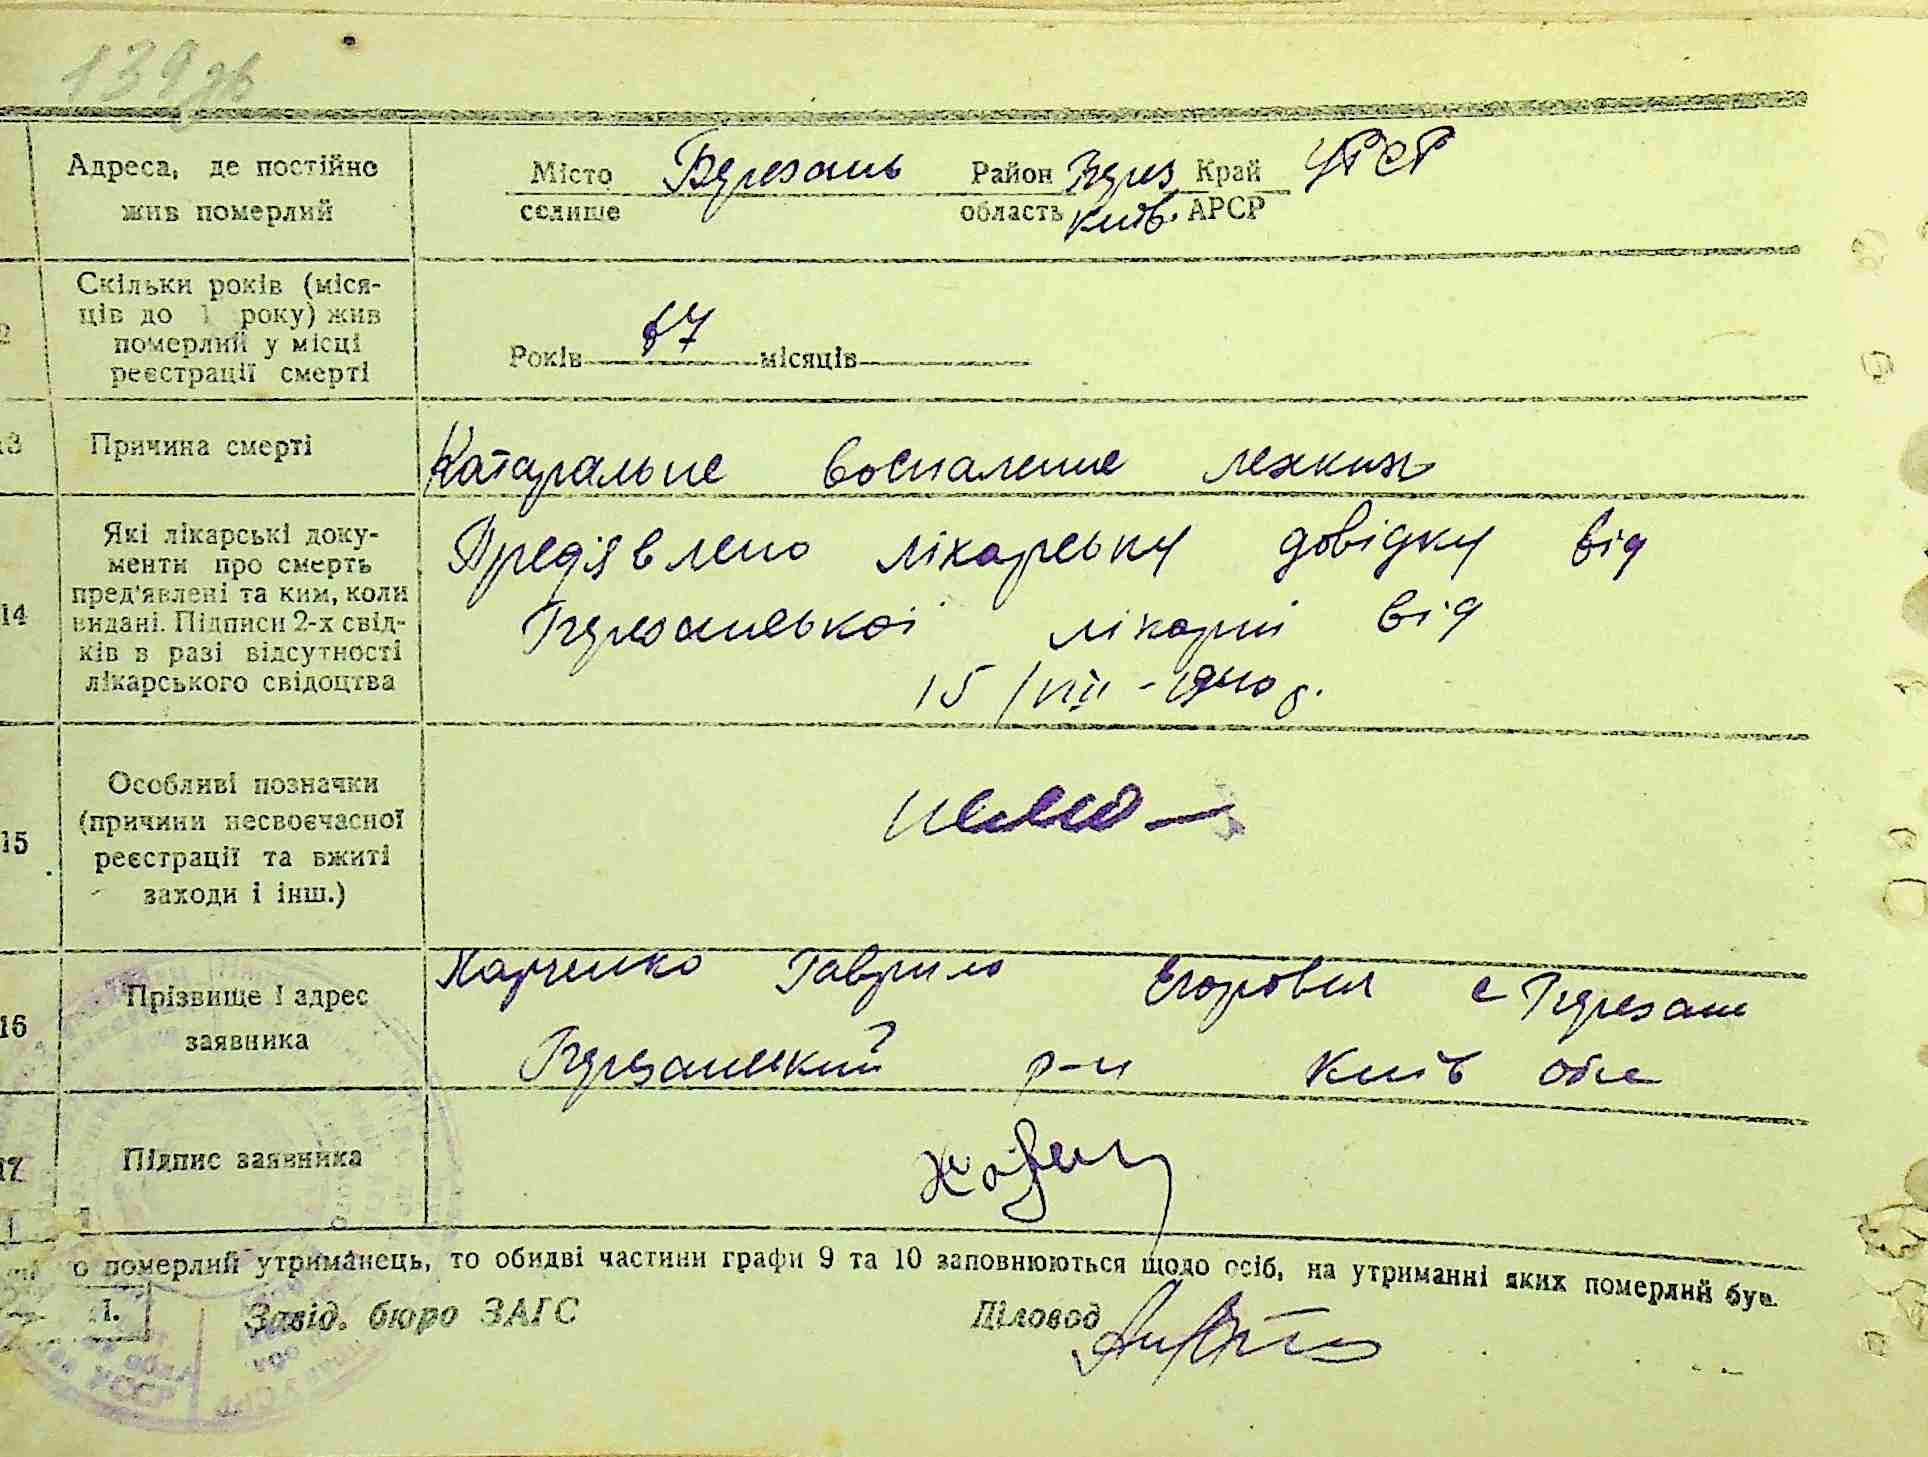 139 зв
Адреса, де постійно
жив померлий
Місто Березань Район Берез Край УРСР
селище область Київ. АРСР
Скільки років (міся-
ців до 1 року) жив
померлий у місці
реєстрації смерті
Років 67 місяців
13 Причина смерті
Катаральне воспаление лехких
14
Які лікарські доку-
менти про смерть
пред'явлені та ким, коли
видані. Підписи 2-х свід-
ків в разі відсутності
лікарського свідоцтва
Пред'явлено лікарську довідку від
Березанської лікарні від
15/VIII-1940 р.
15
Особливі позначки
(причини несвоєчасної
реєстрації та вжиті
заходи і інш.)
нема
16
Прізвище і адрес
заявника
Марченко Гаврило Егорович с Березань
Березанський р-н Київ обл
17 Підпис заявника
о померлий утриманець, то обидві частини графи 9 та 10 заповнюються щодо осіб, на утриманні яких померлий був.
П.
Завід. бюро ЗАГС Діловод